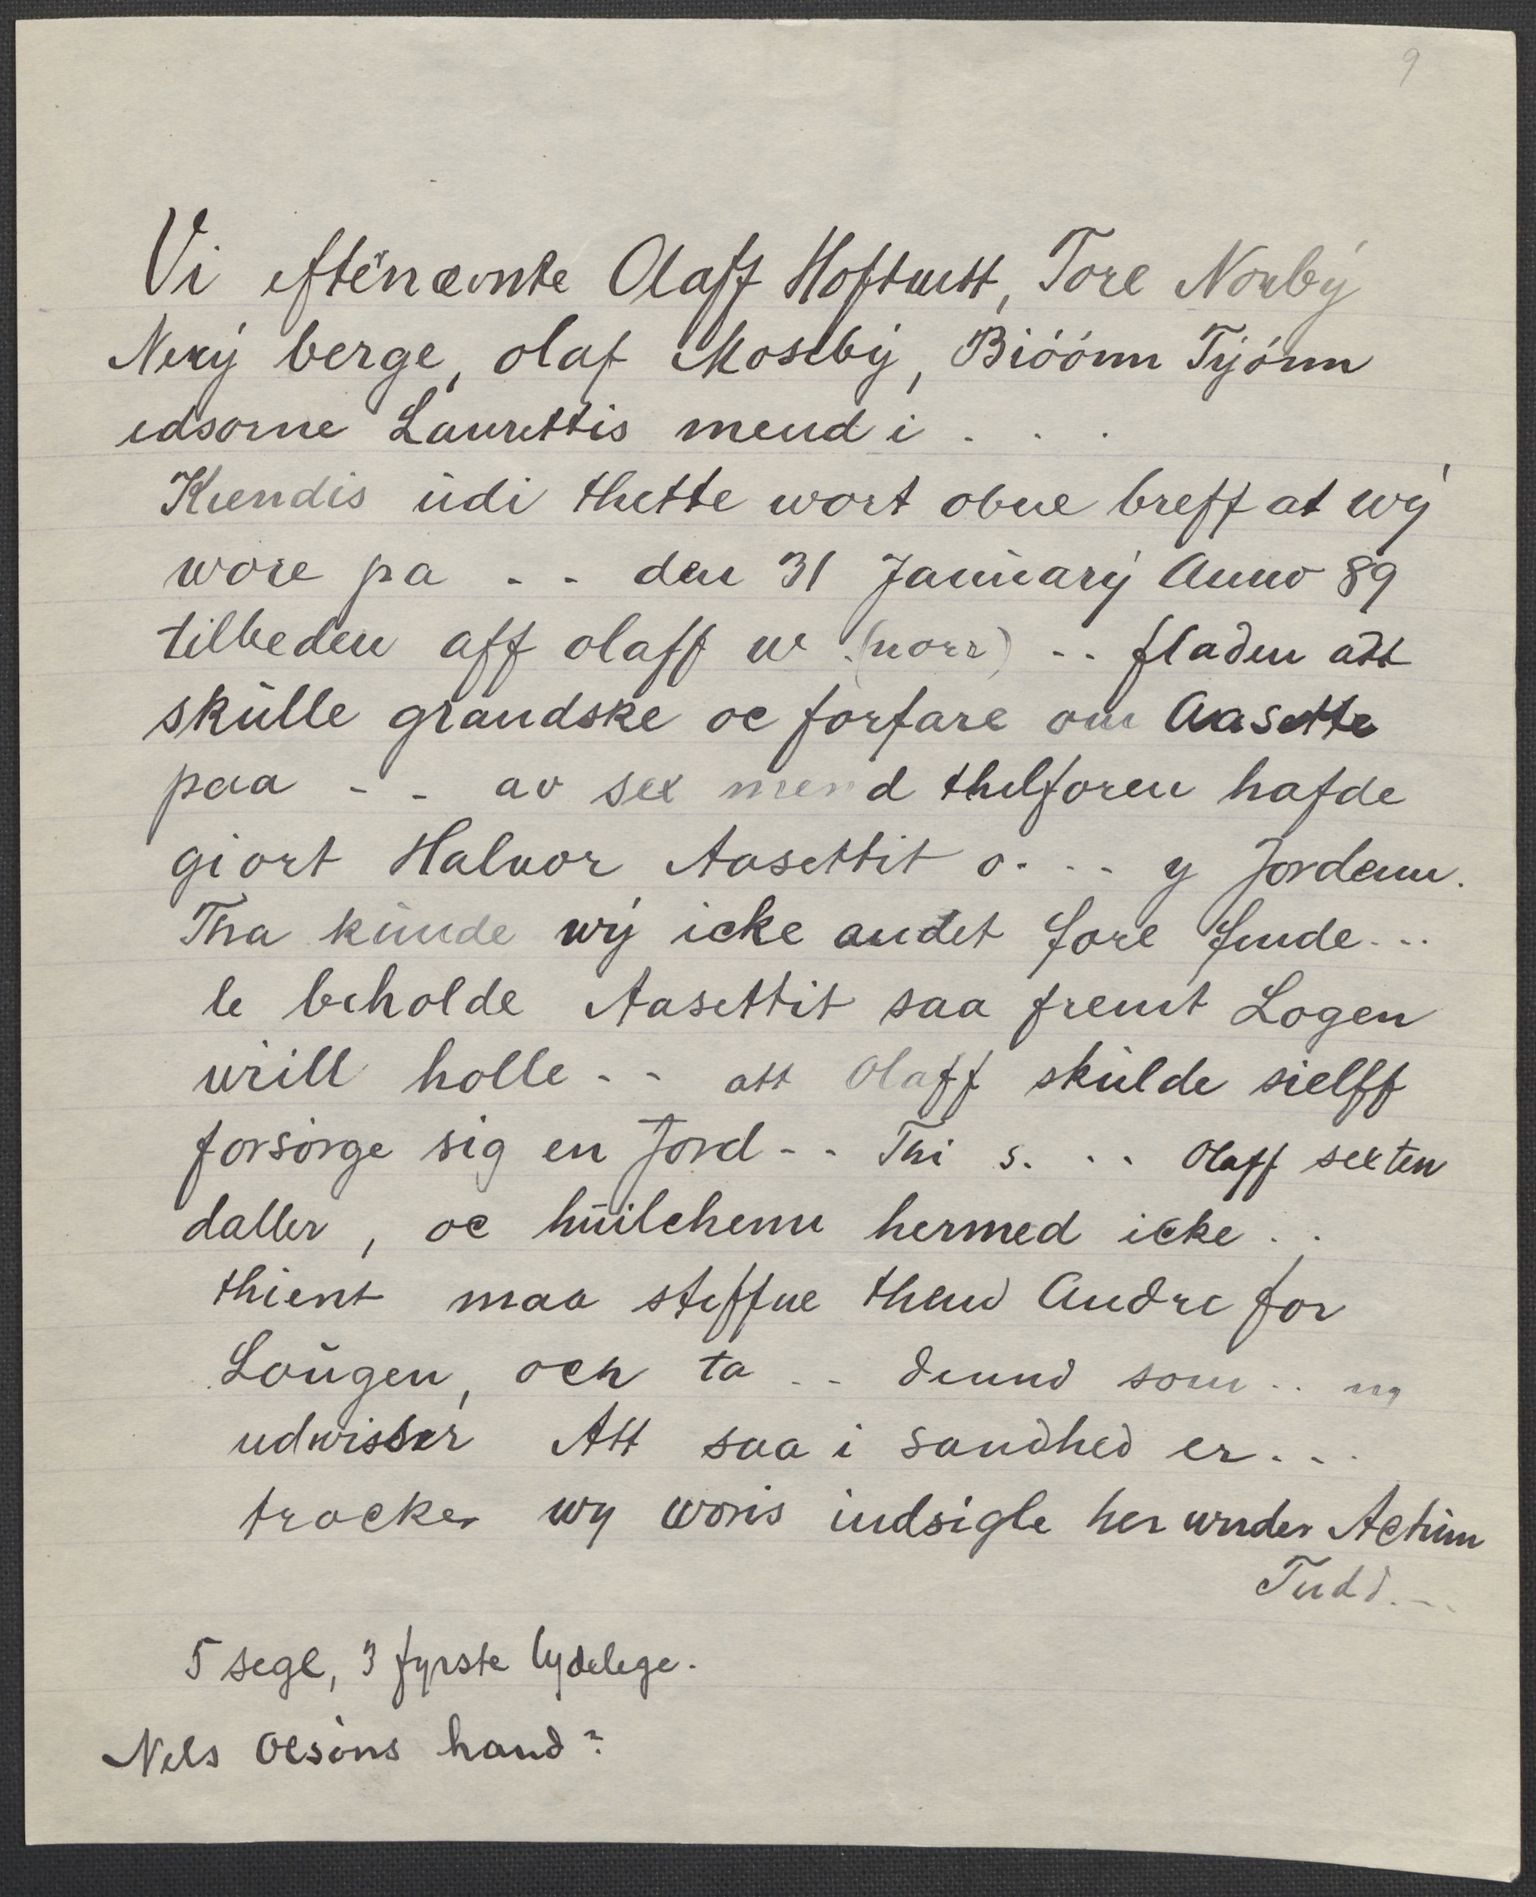 9
Vi eftĕnævnte Olaff Hoftuett, Tore Norby
Nerÿ berge, olaf Moseby, Bióónn Tÿónn
edsorne Laurettis mend i . . .
Kiendis ŭdi thette wort obne breff at wÿ
wore pa - - den 31 Janŭarÿ Anno 89
tilbeden aff olaff w . (norr) - - fladen att
skŭlle grandske oc forfare om Aasette
paa - - ao sex mend thilforen hafde
giort Haluor Aasettit o. - - y Jordenn.
Tha kŭnde wÿ icke andet fore finde - - .
le beholde Aasettit saa fremt Logen
will holle - - att Olaff skŭlde sielff
forsórge sig en Jord - - Thi s. . . Olaff sexten
daller, oc hŭilchenn hermed icke . .
thient maa steffne thend Andre for
Loŭgen, och ta - - dennd som . . ng
udwisser Att saa i sandhed er . . .
trocker wy woris indsigle her wnder Actŭm
Tudd . - -
5 segl, 3 fyrste lydelege.
Nels Olsóns hand?